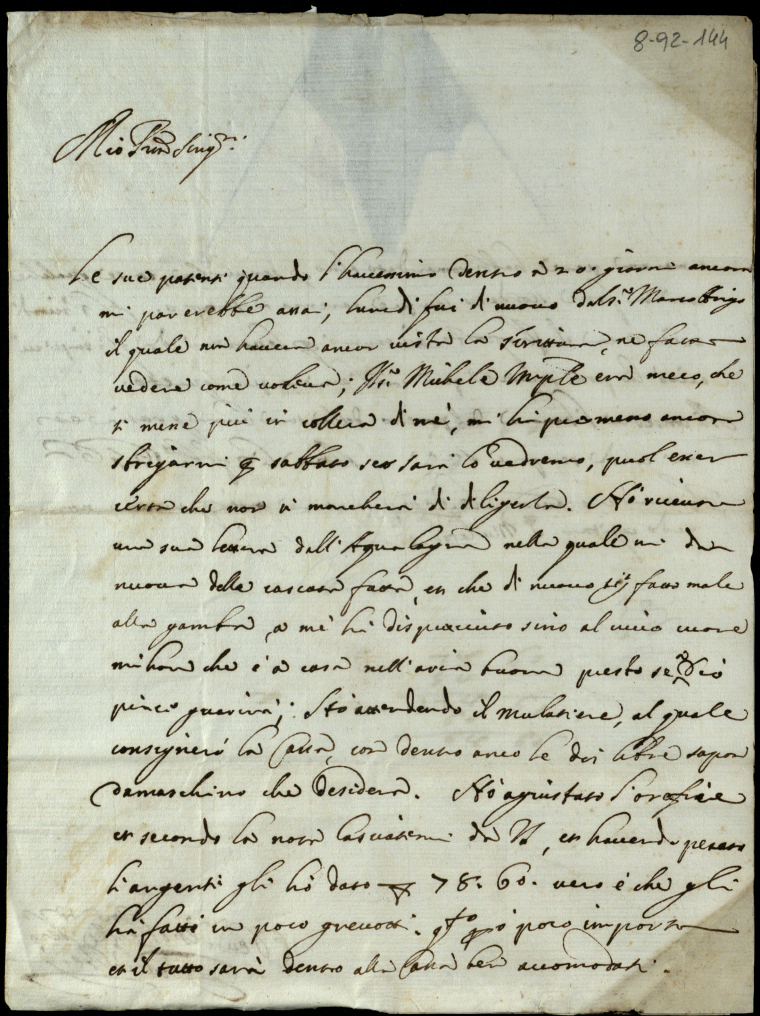 8-92-144
Mio Pron Sing.r
Le sue patenti quando l'havessimo dentro à 20. giorni ancora
mi parerebbe assai, lunedi fui di nuovo dal S.r Marco
il quale non haveva ancor vista la scrittura, ne fatta
vedere come voleva; il S.r Michele era meco, che
si mene più in collera di me, mi hà promesso ancora
sbrigarmi sabbato sera lo vedremo, puol esser
certa che non si mancherà di diligenza. Hò ricevuta
una sua lettera dall'Aqualagna nella quale mi dà
nuova della cascata fatta, et che di nuovo fatto male
alla gamba, a me hà dispiacciuto sino al vivo cuore
mentre che è a casa nell'aria buona presto se a Dio
piace guarirà; Stò attendendo il mulatiere, al quale
consignerò la Cassa, con dentro anco le doi libre sapon
damaschino che desidera. Hò agiustato l'orefice
et secondo la nota lasciatemi da VS, et havendo pesato
l'argenti gli hò dato 78. 60. vero è che gli
hà fatti un poco grevotti. q.sto però poco importa
et il tutto sarà dentro alla Cassa ben accomodati.